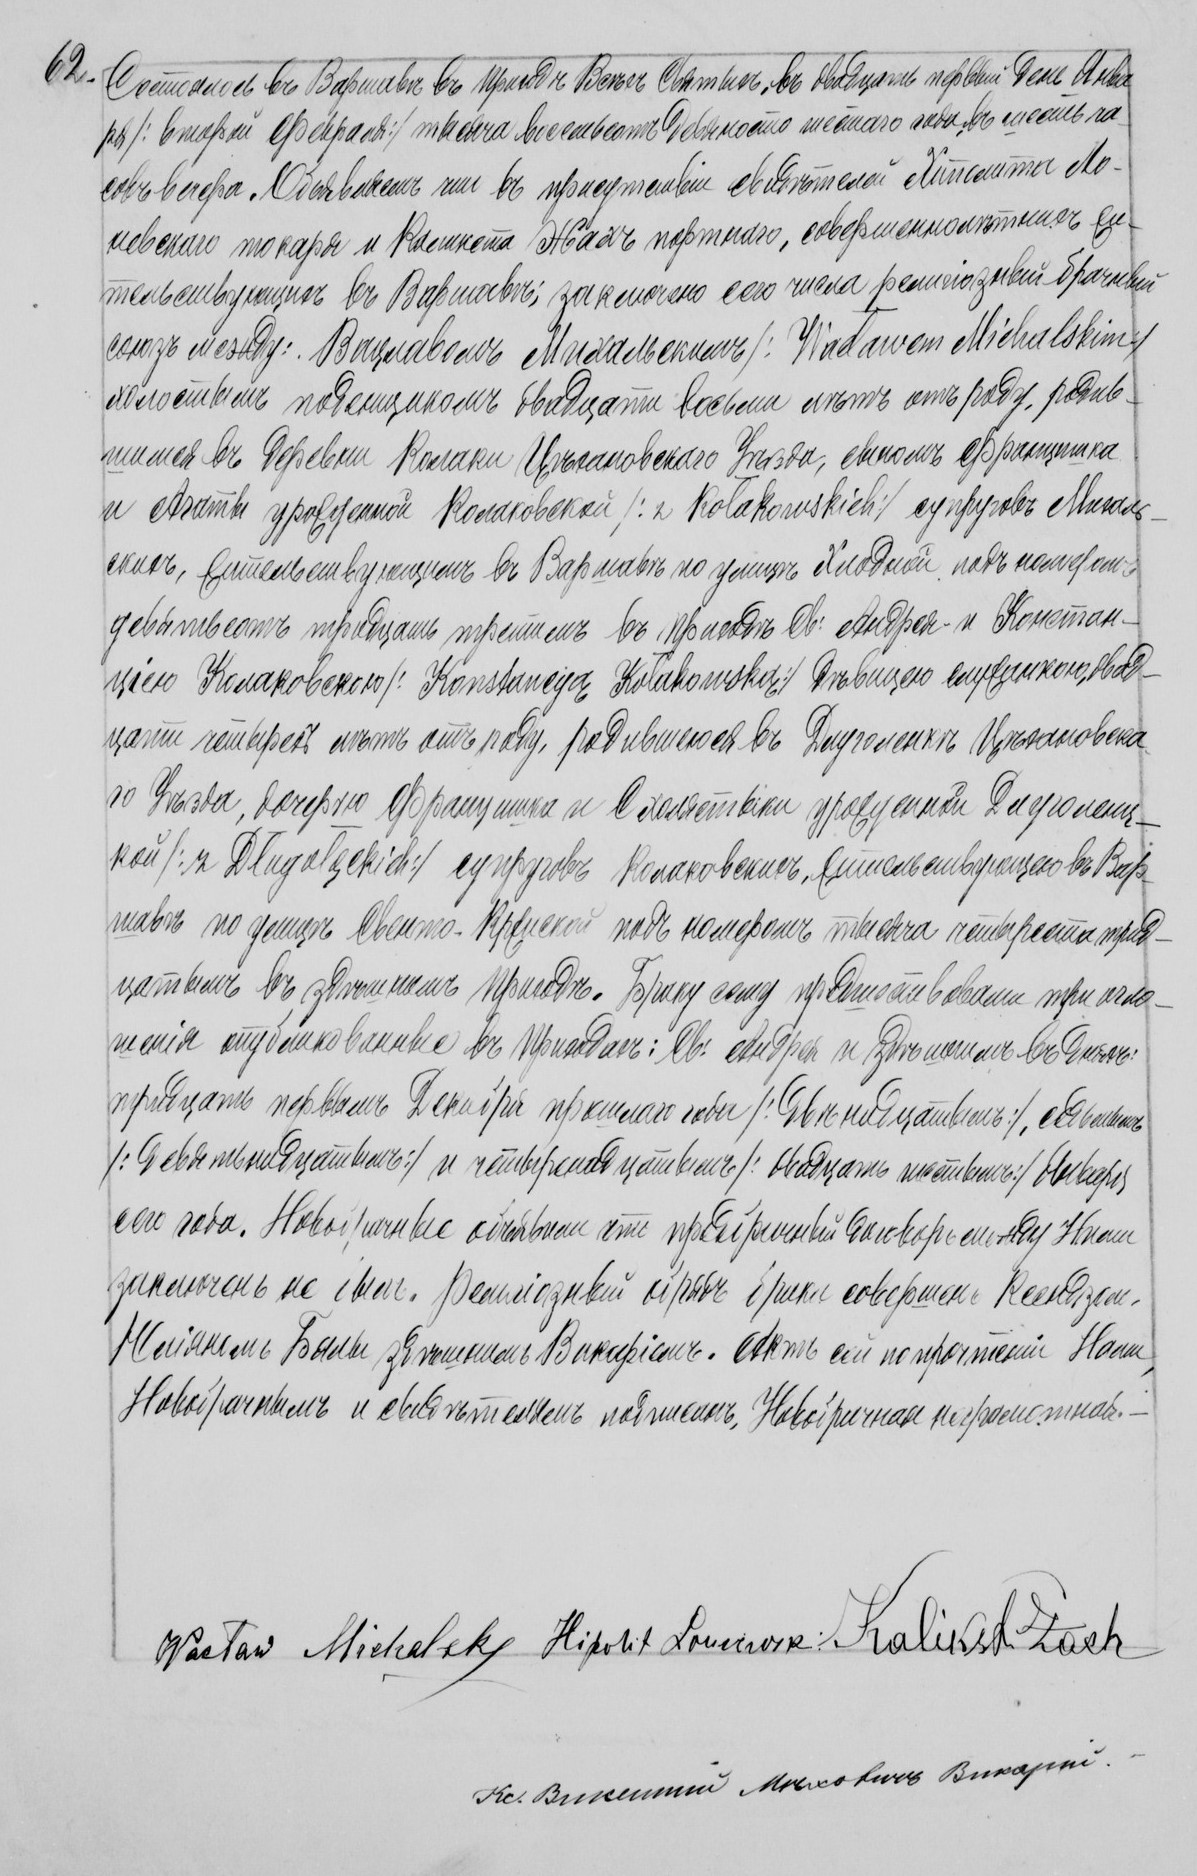 62.
Состоялось въ Варшавѣ въ приходѣ Всѣхъ Святыхъ, въ двадцать первый день Янва
ря /: второй Февраля:/ тысяча восемьсотъ девяносто шестаго года, въ шесть ча-
совъ вечера. Объявляемъ что въ присутствіи свидѣтелей Хиполита
токаря и Каликста Жахъ портнаго, совершеннолѣтнихъ жи-
тельствующихъ въ Варшавѣ; заключено сего числа религіозный брачный
союзъ между: Вацлавомъ Михальскимъ /: Wacławem Michalskim:/
холостымъ поденщикомъ двадцати восьми лѣтъ отъ роду, родив-
шимся въ деревни Колаки Цѣхановскаго Уѣзда, сыномъ Францишка
и Агаты урожденной Колаковской /: z Kołakowskich:/ супруговъ Михаль-
скихъ, жительствующимъ въ Варшавѣ по улицѣ Хлодной подъ номеромъ
девятьсотъ тридцать третьемъ въ приходѣ Св: Андрея - и Констан-
ціею Колаковскою /: Konstancyą Kołakowską:/ дѣвицею служанкою, двад-
цати четырехъ лѣтъ отъ роду, родившеюся въ Длуголенкѣ Цѣхановска
го Уѣзда, дочерью Францишка и Схолястыки урожденной Длуголенц-
кой /: z Długołęckich:/ супруговъ Колаковскихъ, жительствующею въ Вар-
шавѣ по улицѣ Свенто-Кржиской подъ номеромъ тысяча четыреста трид-
цатымъ въ здѣшнемъ приходѣ. Браку сему предшествовали три огло-
шенія опубликованные въ приходахъ: Св: Андрея и здѣшнемъ въ дняхъ:
тридцать первымъ Декабря прошлаго года /: двѣнадцатымъ:/, седьмымъ
/: девятьнадцатымъ:/ и четырнадцатымъ /: двадцать шестымъ:/ Января
сего года. Новобрачные объявили что предбрачный договоръ между Ними
заключенъ не былъ. Религіозный обрядъ брака совершенъ Ксендзомъ
Юліаномъ здѣшнимъ Викаріемъ. Актъ сей по прочтеніи Нами,
Новобрачнымъ и свидѣтелямъ подписанъ, Новобрачная неграмотная.-
Wacław Michalsky Hipolit Kalikst Żach
Кс. Викентій Мѣховичъ Викарій.-